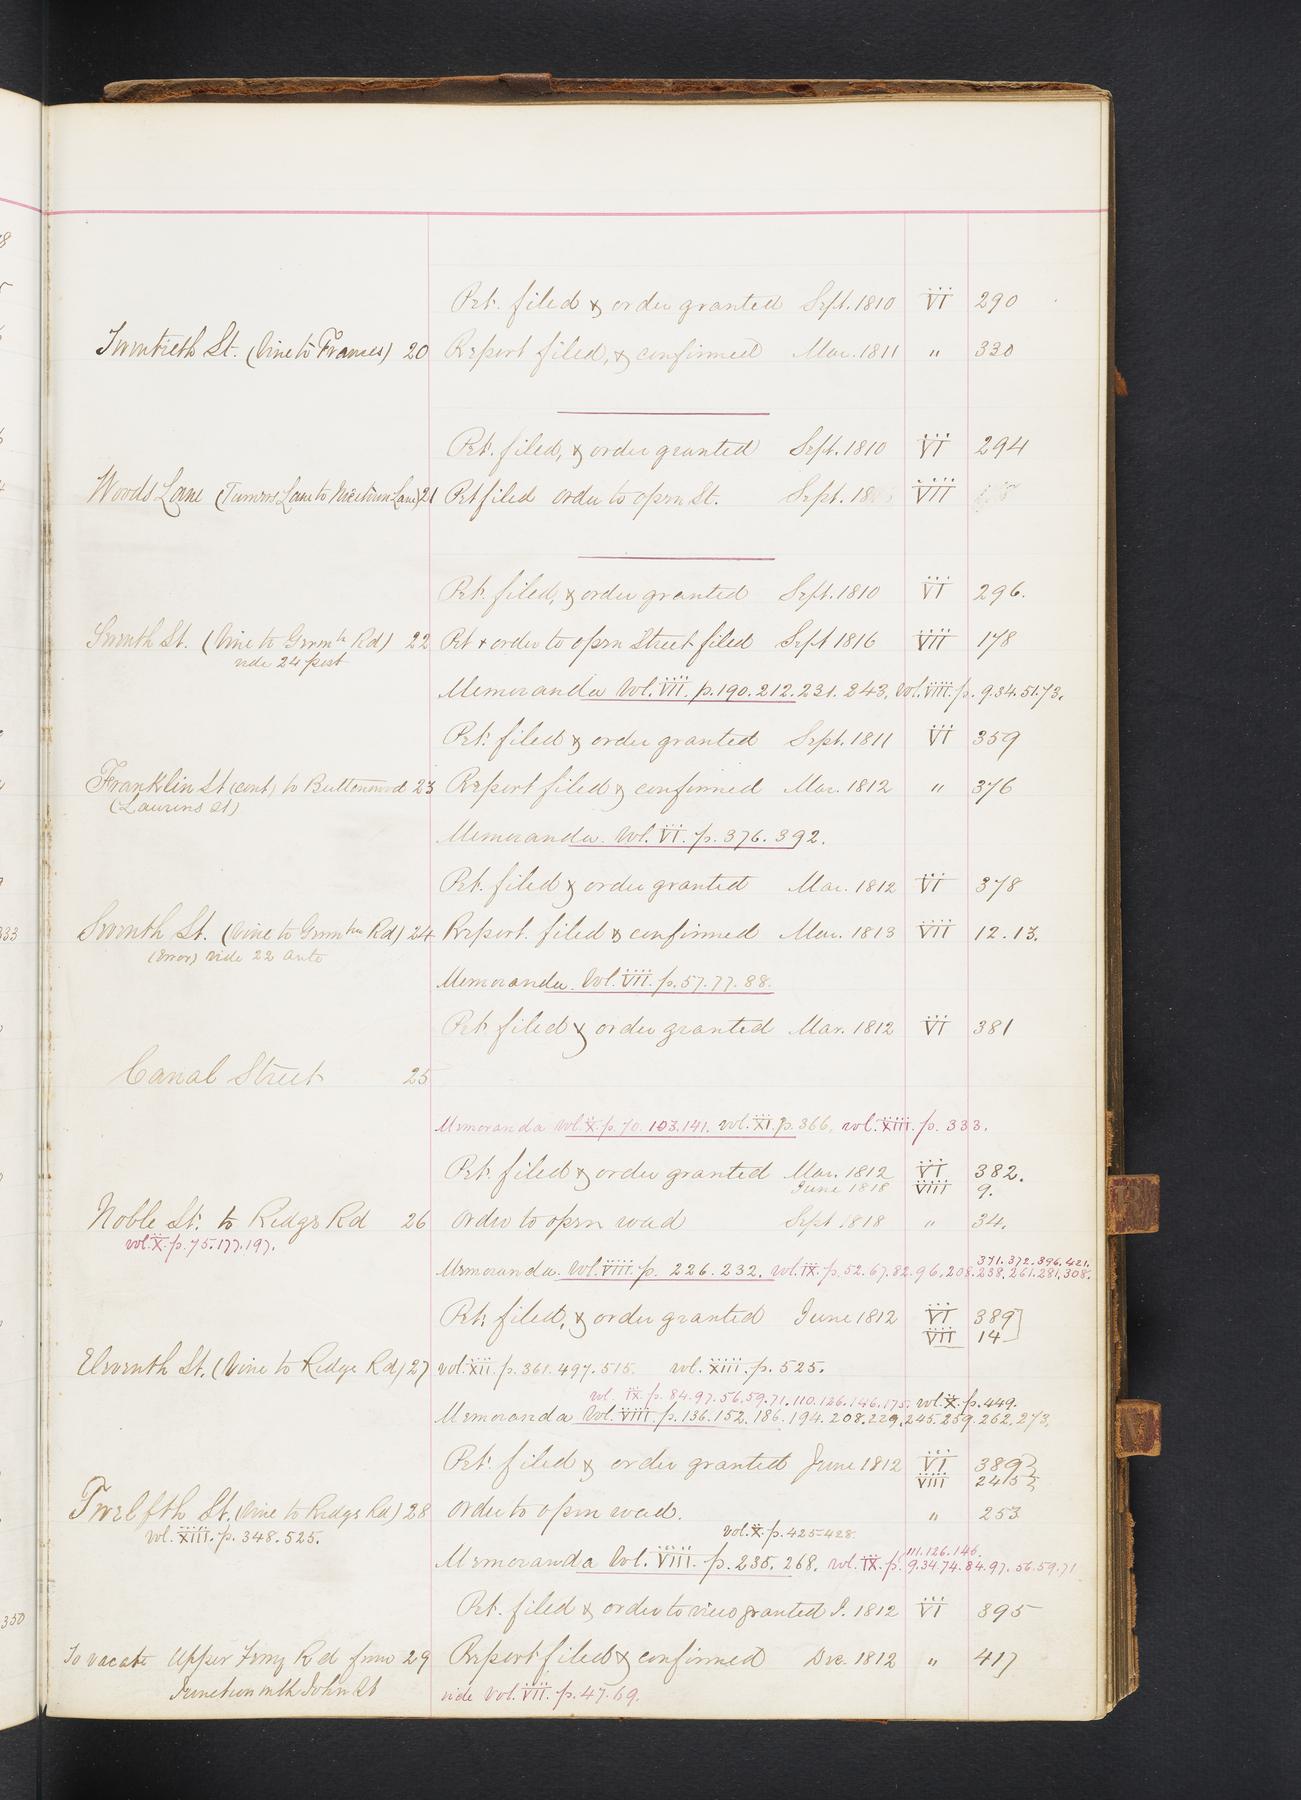 Pet. filed & order granted Sept. 1810 VI 290
Twentieth St. (Vine to Frances) 20 Report filed, & confirmed Mar. 1811 " 330
Pet. filed, & order granted Sept. 1810 VI 294
Woods Lane (Turners Lane to Nicetown Lane) 21 Pet filed order to open St. Sept. VII
Pet. filed, & order granted Sept. 1810 VI 296.
Seventh St. (Vine to Germtn Rd) 22 Pet & order to open Street filed Sept 1816 VIII 178
vide 24 post
Memoranda Vol. VII. p. 190. 212. 231. 243. Vol. VIII. p. 9. 34. 51. 73.
Pet. filed & order granted Sept. 1811 VI 359
Franklin St (cont) to Buttonwood 23 Report filed & confirmed Mar. 1812 " 376
(Laurens St)
Memoranda. Vol. VI. p. 376. 392.
Pet. filed & order granted Mar. 1812 VI 378
Seventh St. (Vine to Germtn Rd) 24 Report. filed & confirmed Mar. 1813 VII 12. 13.
(Error) vide 22 ante
Memoranda. Vol. VII. p. 57. 77. 88.
Pet. filed & order granted Mar. 1812 VI 381
Canal Street 25
Memoranda vol. X. p. 70. 103. 141. vol. XI. p. 366. vol. XIII. p. 333.
Pet. filed & order granted Mar. 1812 VI 382.
June 1818 VIII 9.
Noble St. to Ridge Rd 26 Order to open road Sept 1818 " 34.
vol. X. p. 75. 177. 197.
371. 372. 396. 421.
Memoranda. Vol. VIII. p. 226. 232. vol. IX. p. 52. 67. 82. 96. 208. 238. 261. 281. 308.
Pet. filed, & order granted June 1812 VI 389
VII 14
Eleventh St. (Vine to Ridge Rd) 27 vol. XII. p. 361. 497. 515. vol. XIII. p. 525.
vol. IX. p. 84. 97. 56. 59. 71. 110. 126. 146. 175. vol. X. p. 449.
Memoranda Vol. VIII. p. 136. 152. 186. 194. 208. 229. 245. 259. 262. 273.
Pet. filed & order granted June 1812 VI 389
VIII 245
Twelfth St. (Vine to Ridge Rd) 28 Order to open road. " 253
vol. XIII. p. 348. 525.
vol. X. p. 425-428.
111. 126. 146.
Memoranda Vol. VIII. p. 235. 268. vol. IX. p. 9. 34 74. 84. 97. 56. 59. 71
Pet. filed & order to view granted J. 1812 VI 395
To vacate Upper Ferry Rd from 29 Report filed & confirmed Dec. 1812 " 417
Junction with John St vide Vol. VII. p. 47. 69.
333
350